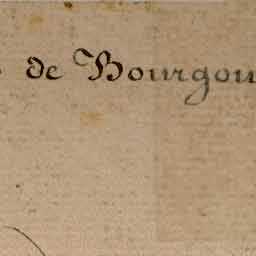 de Bourgou